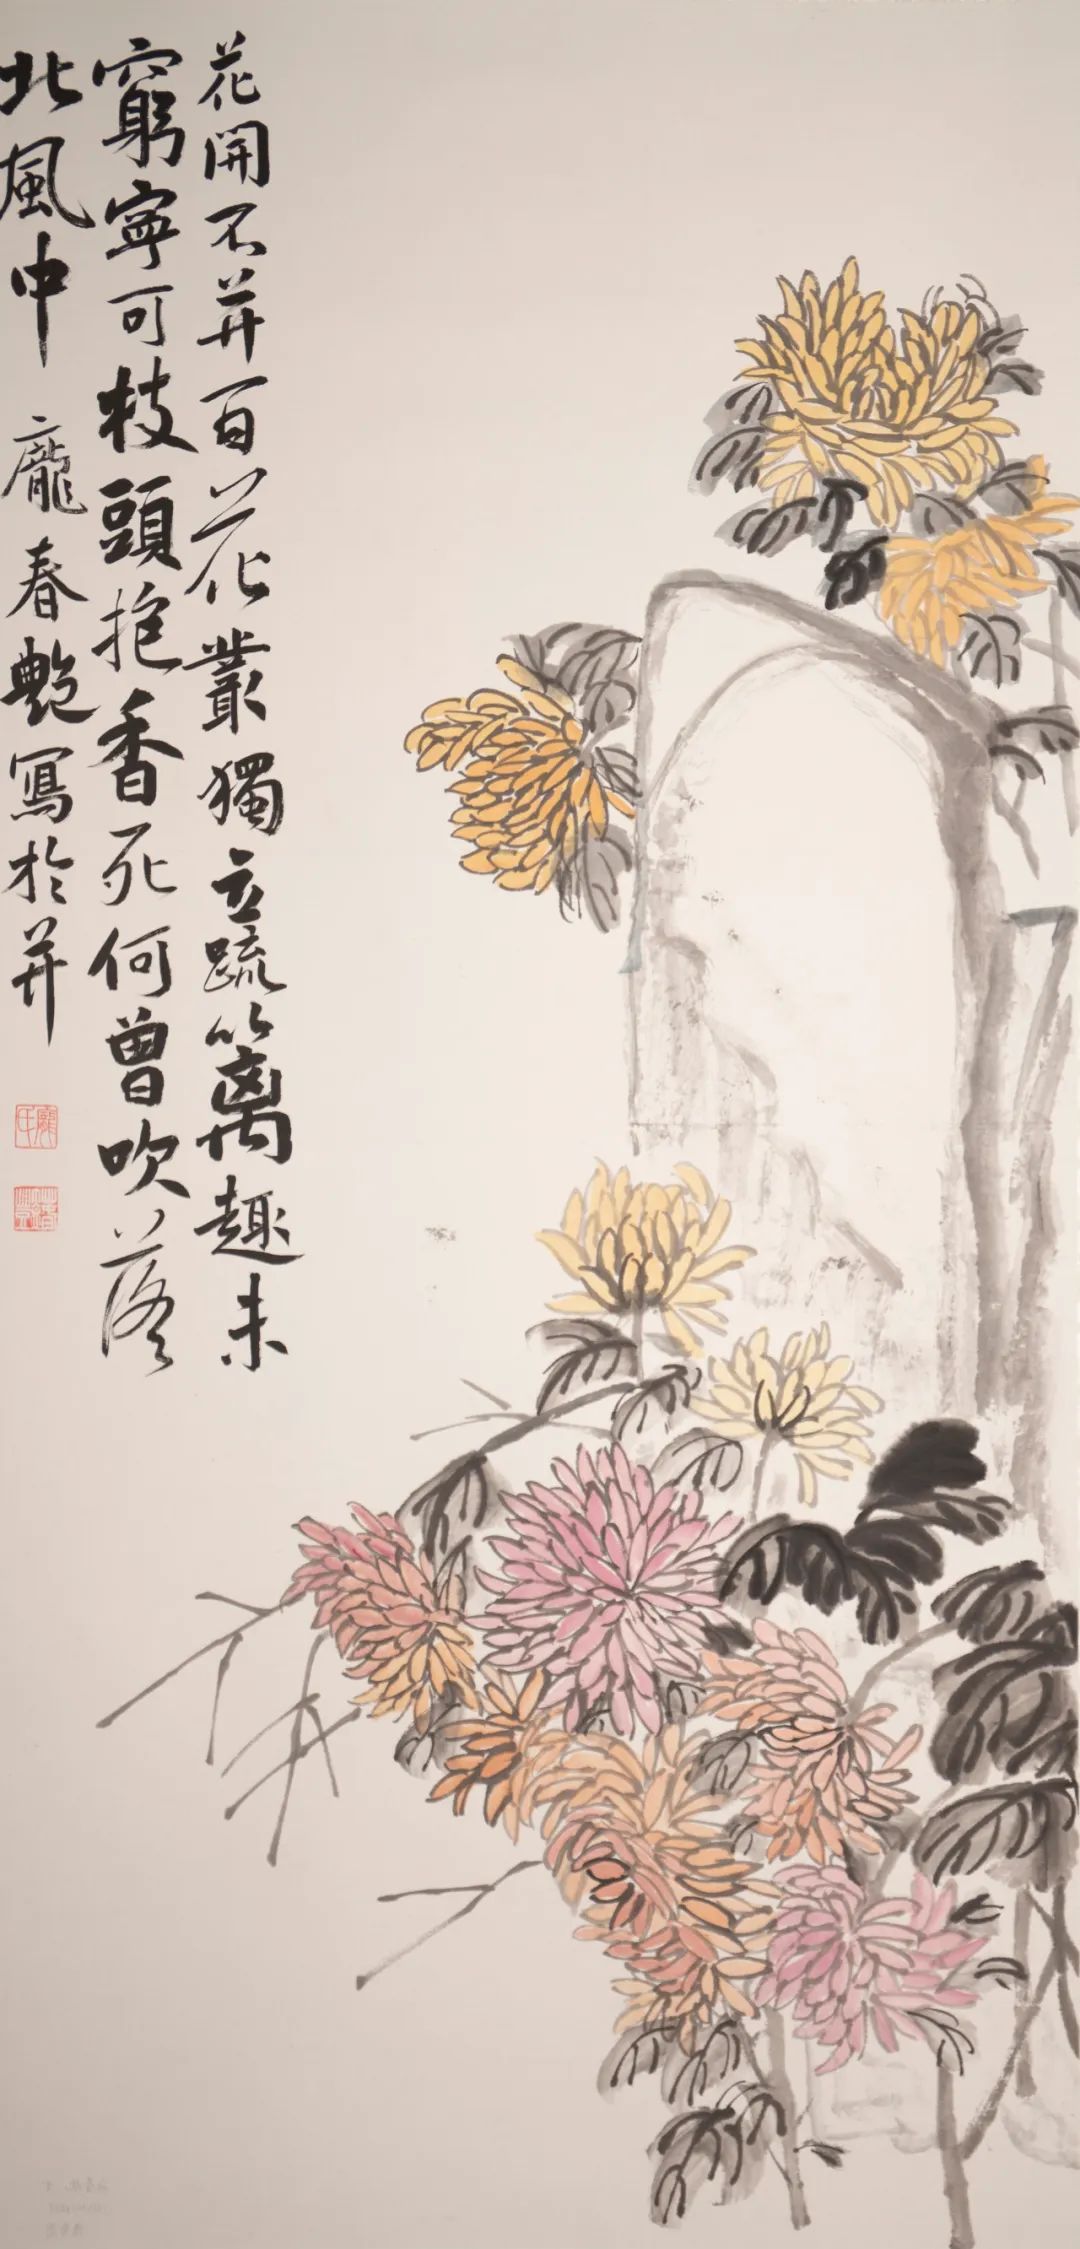 花開不并百花叢獨立疏籬趣未
窮寧可枝頭抱香死何曾吹落
北風中 龐春艷寫於并